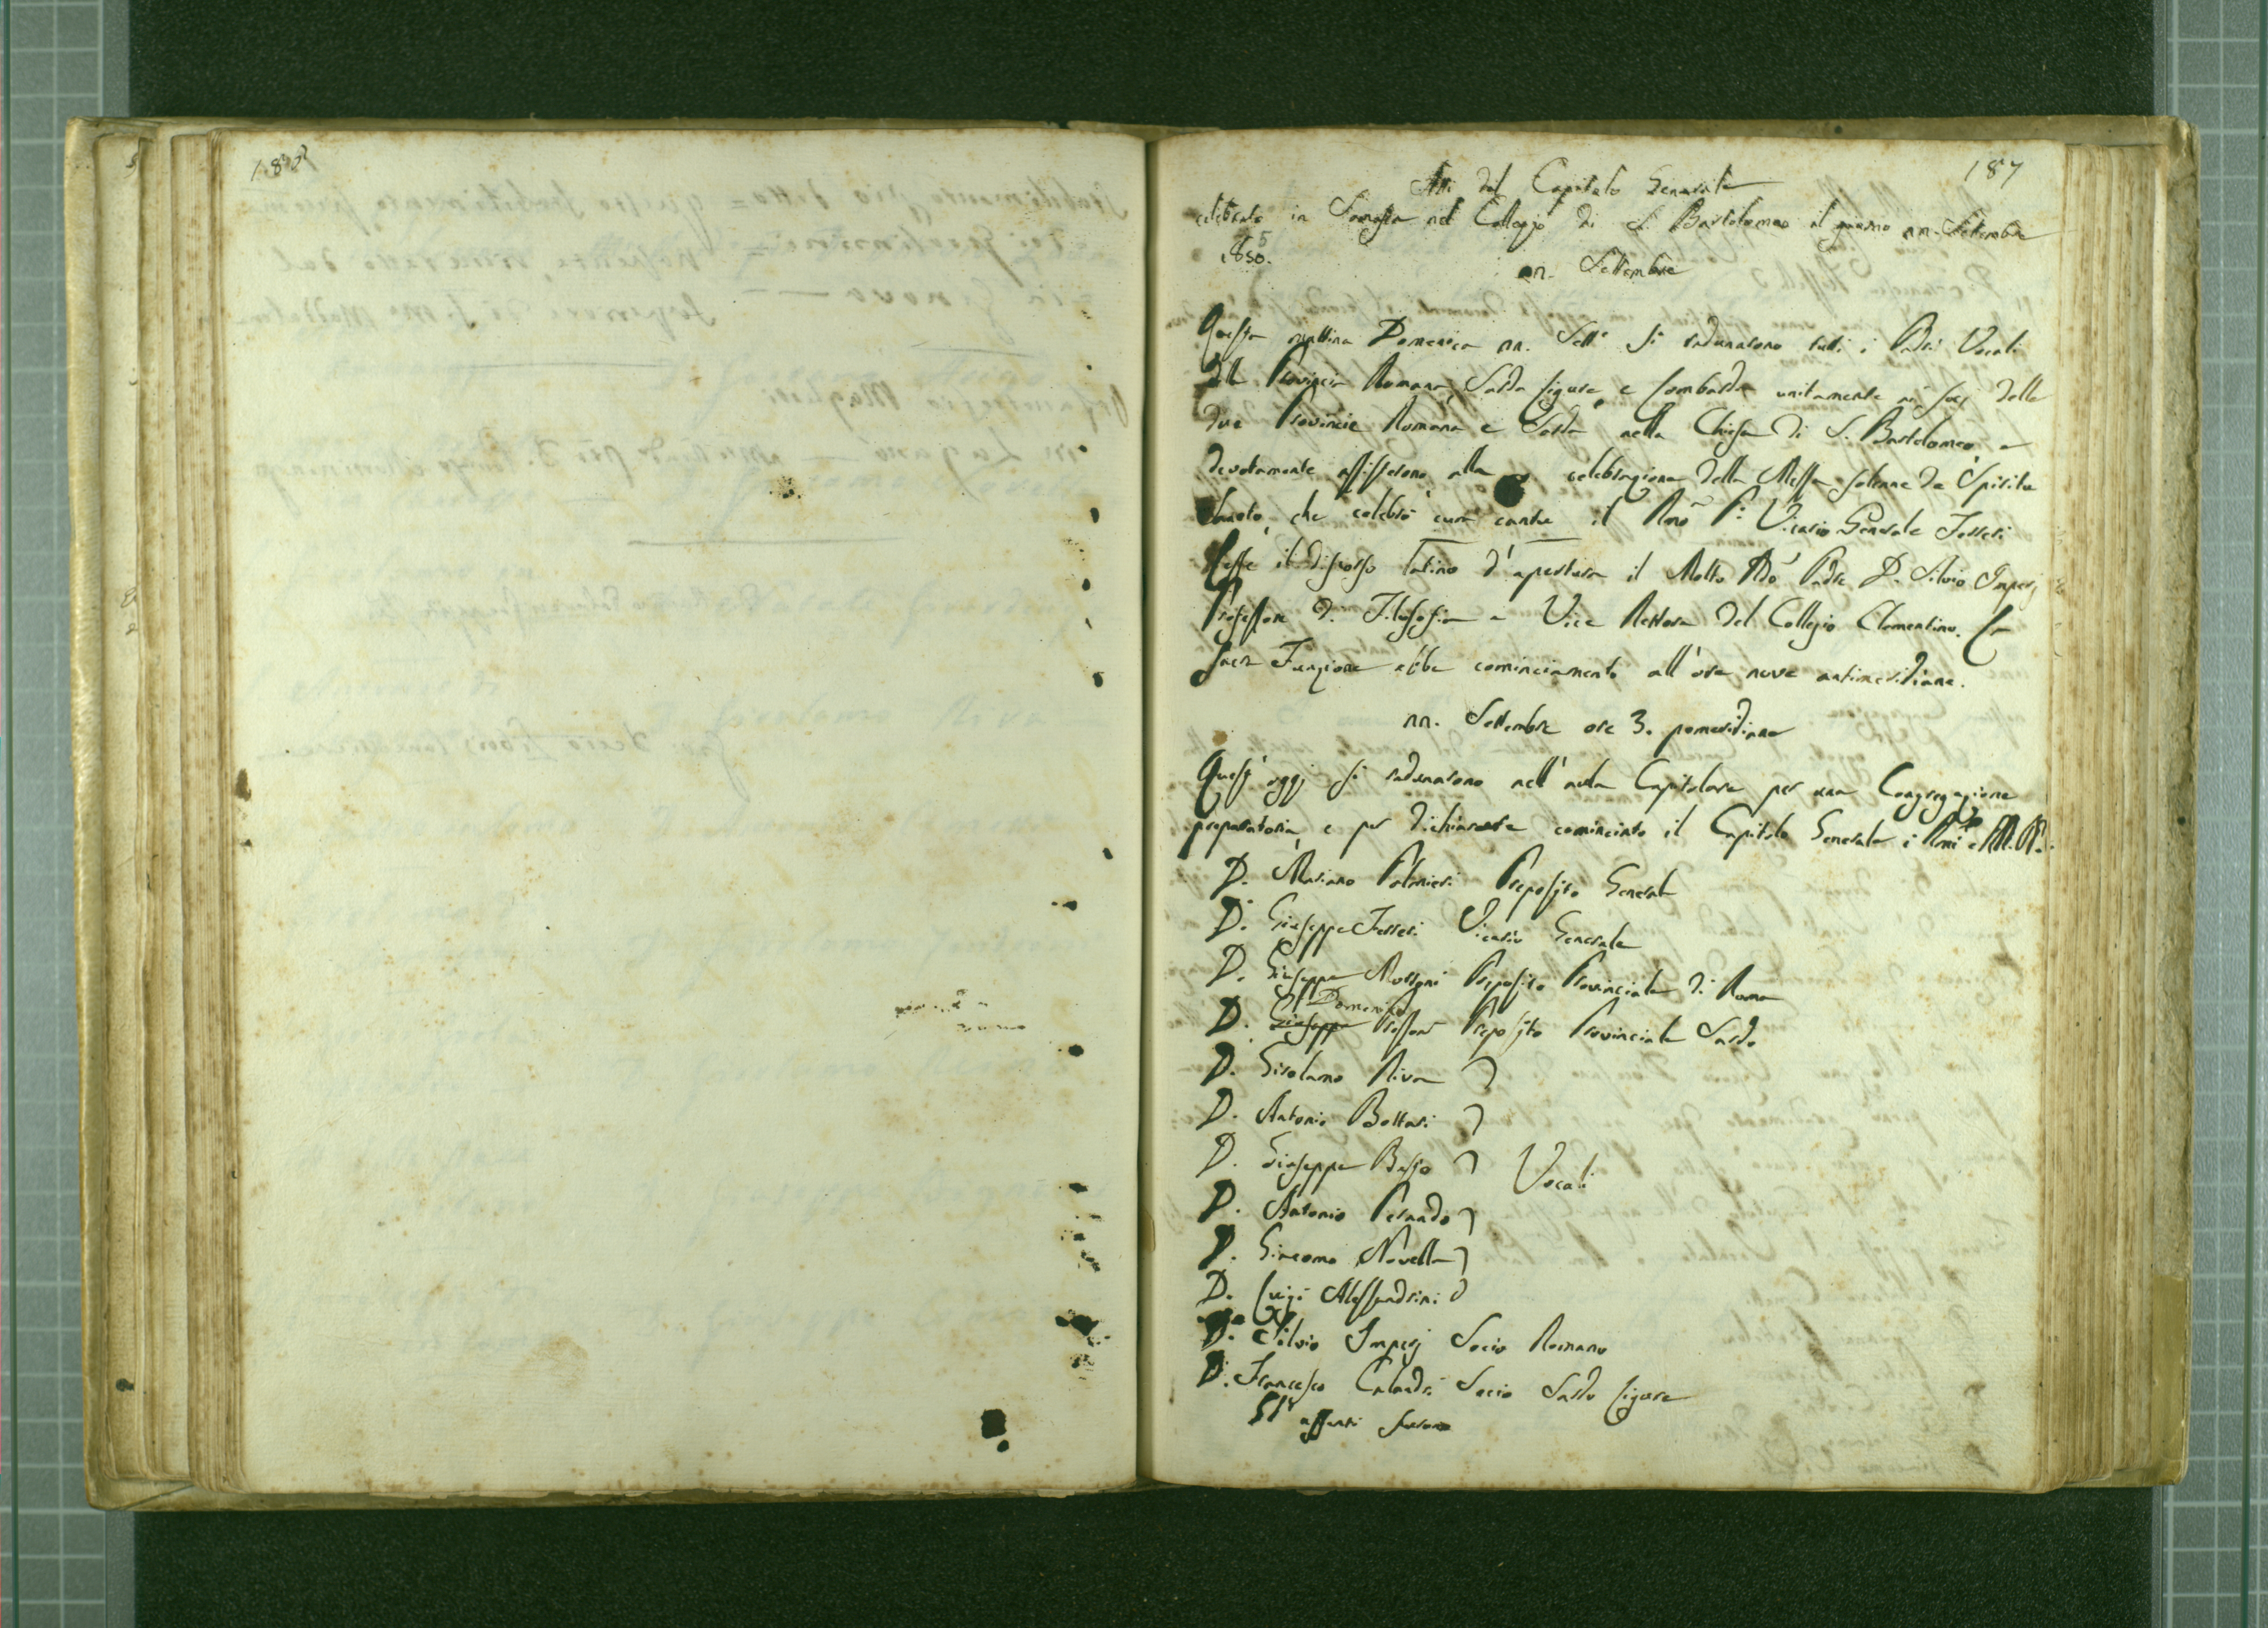 187
Atti del Capitolo Generale
celebrato in Somasca nel Collegio di S. Bartolomeo il giorno nn. Settembre
1850.
nn. Settembre
Questa mattina Domenica nn. Sett.e si radunarono tutti i Padri Vocali
della Provincia Romana, Sarda Ligure, e Lombarda unitamente ai Socj delle
due Provincie Romana e Sarda nella Chiesa di S. Bartolomeo, e
devotamente assisterono alla celebrazione della Messa solenne de Spiritu
Sancto, che celebrò cum cantu il Rmo P. Vicario Generale Ferreri
Lesse il discorso latino d'apertura il Molto Rdo Padre D. Silvio Imperj
Professore di Filosofia e Vice Rettore del Collegio Clementino. La
sacra Funzione ebbe cominciamento all'ore nove antimeridiane.
nn. Settembre ore 3. pomeridiane
Quest'oggi si radunarono nell'aula Capitolare per una Congregazione
preparatoria, e per dichiarare cominciato il Capitolo Generale i Rmi e MM. RR.
D. Mariano Palmieri Preposito Generale
D. Giuseppe Ferreri Vicario Generale
D. Giuseppe Preposito Provinciale di Roma
Domenico
D. Giuseppe Preposito Provinciale Sardo
D. Girolamo Riva
D. Antonio Bottari
D. Giuseppe Vocali
D. Antonio Pernado
D. Giacomo Novella
D. Luigi Alessandrini
D. Silvio Imperj Socio Romano
D. Francesco Calandri Socio Sardo Ligure
Gli assenti furono